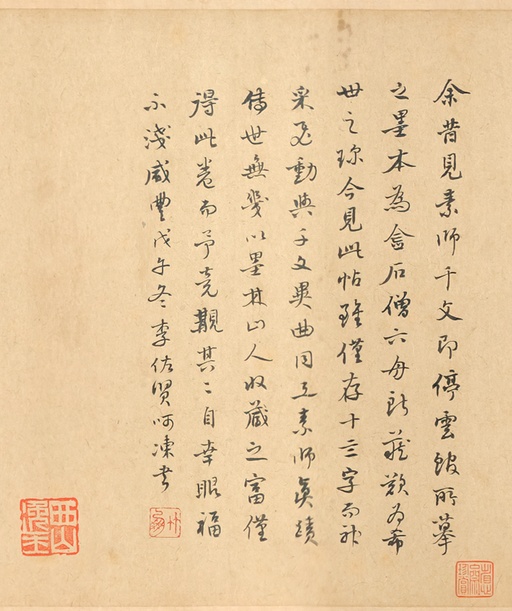 余昔見素師千文即停雲館所摹
之墨本為金石僧六舟所藏歎為希
世之珍今見此帖雖僅存十三字而神
采飛動與千文異曲同工素師真蹟
傳世無幾以墨林山人收藏之富僅
得此卷而予竟觀其二自幸眼福
不淺咸豐戊午冬李佐賢呵凍書
竹朋